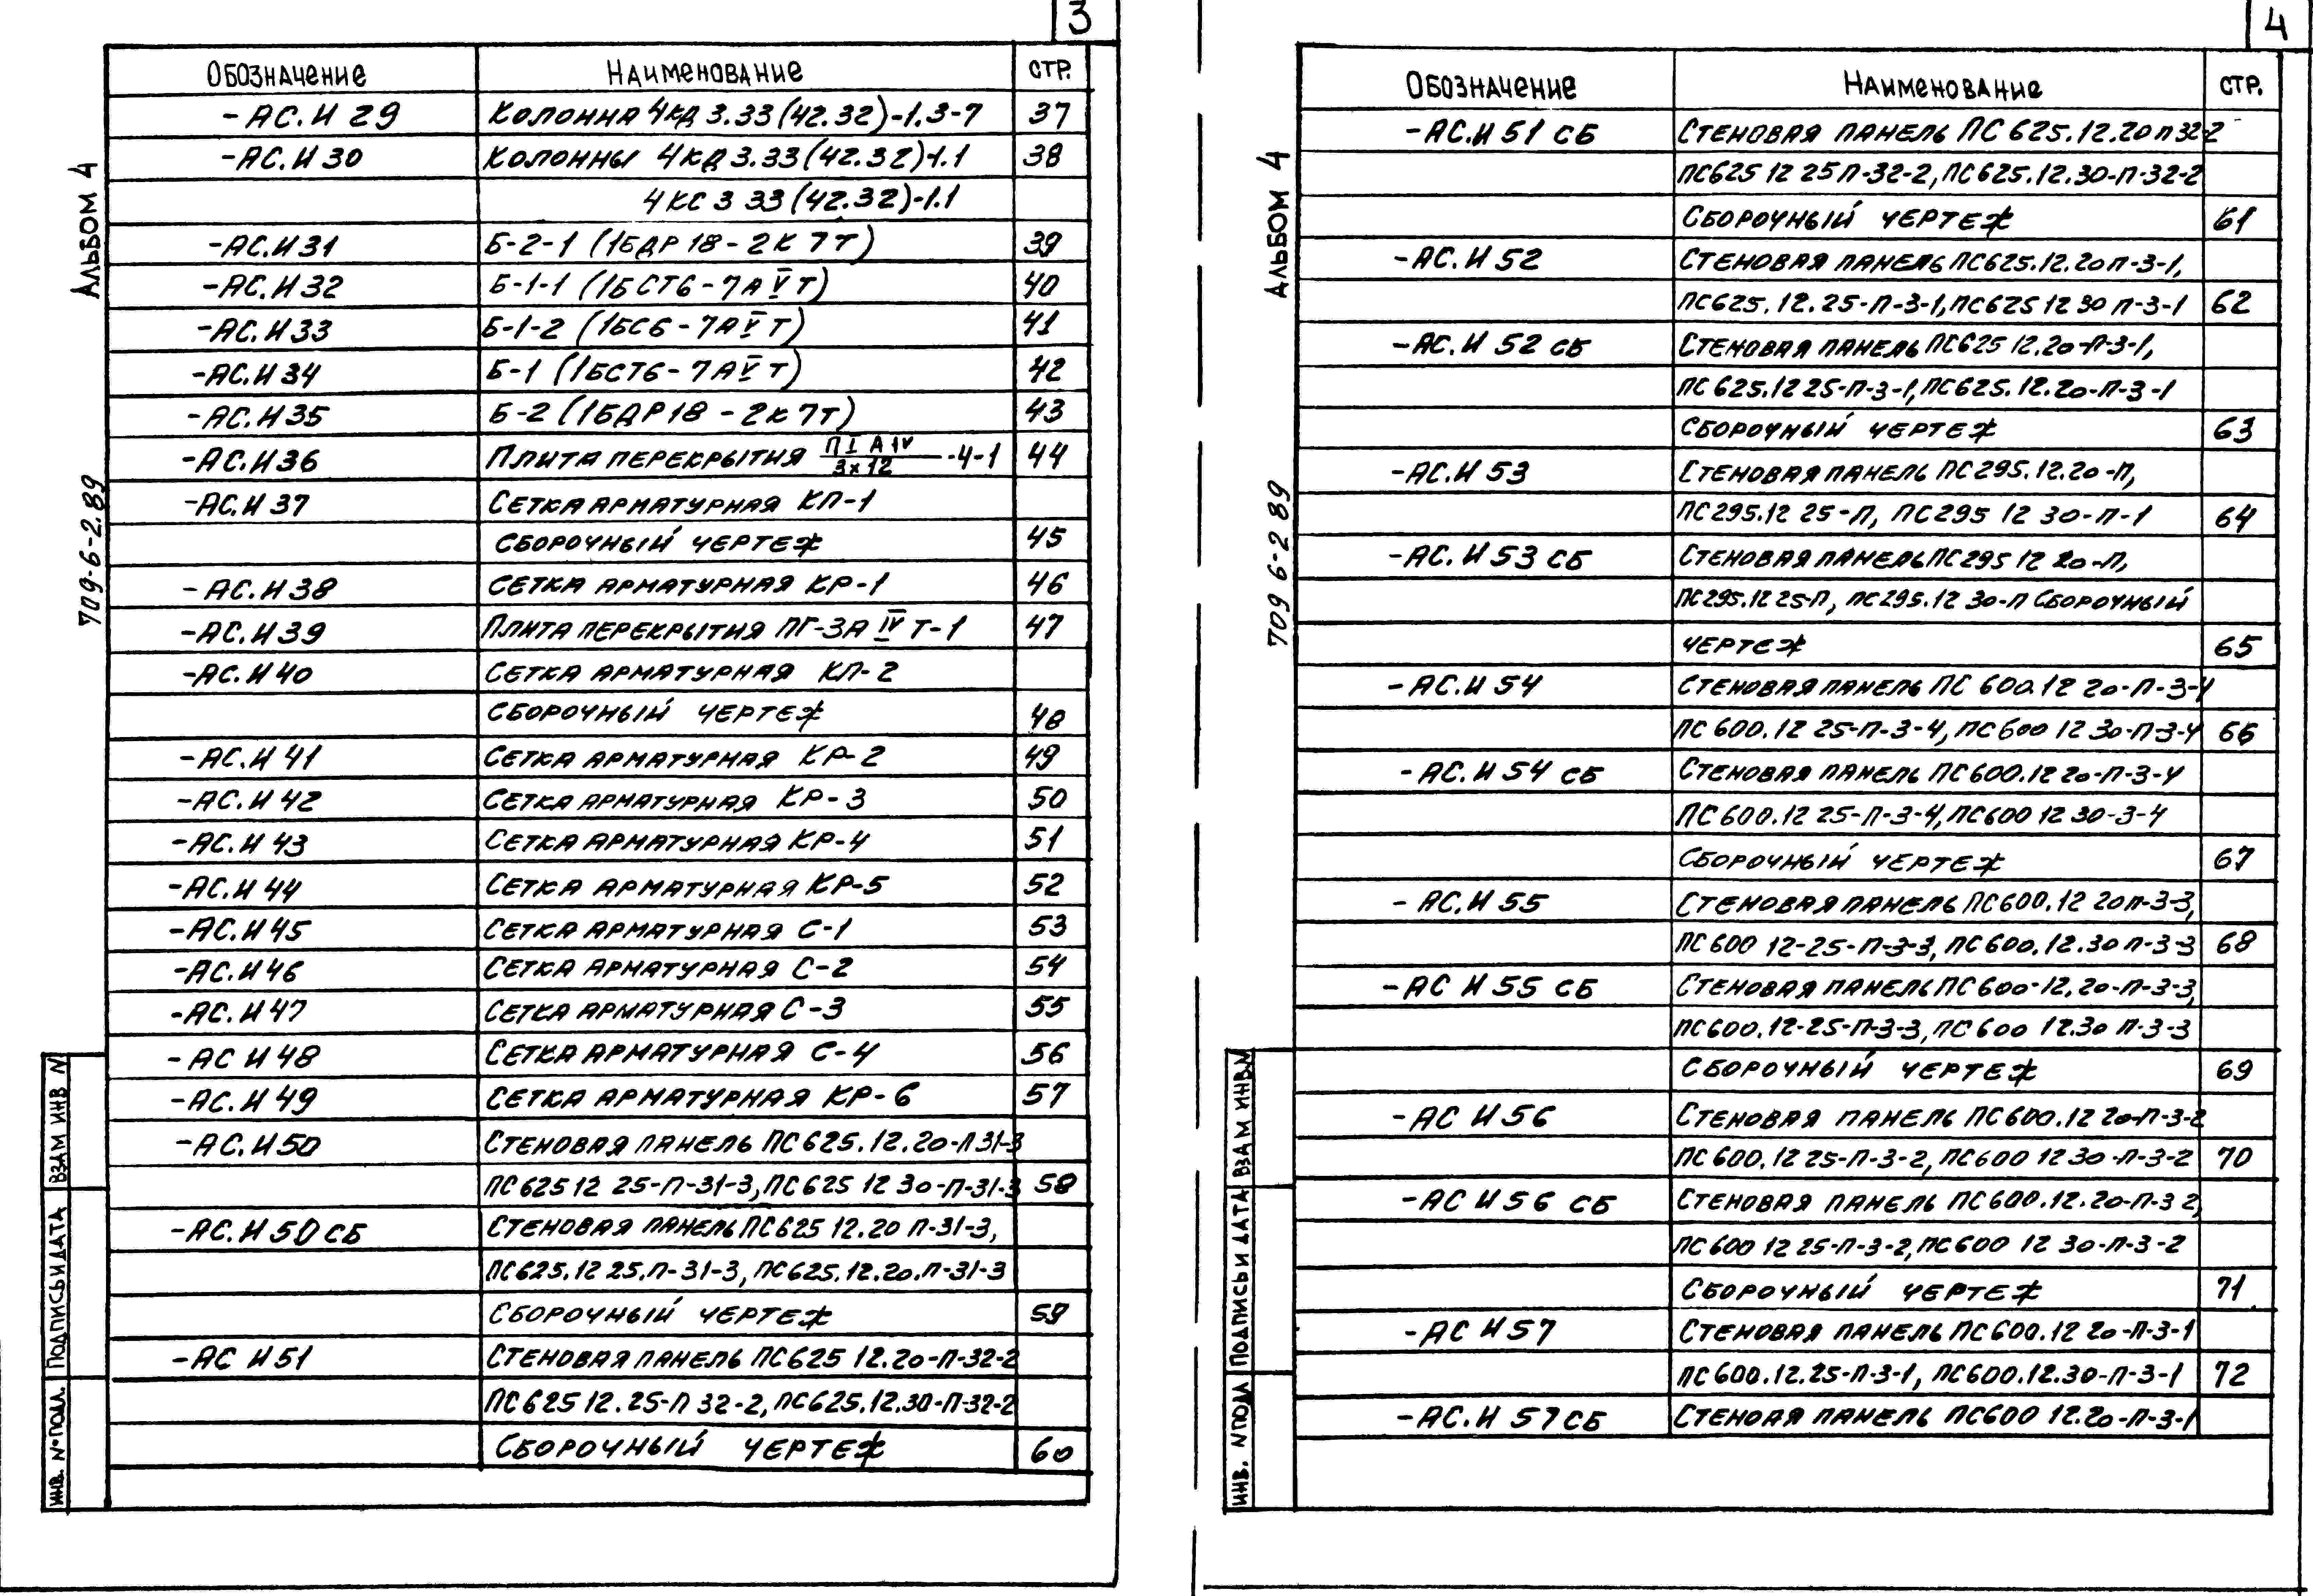 3
Обозначение Наименование СТР.
-АС.И 29 Колонна 4КД 3.33(42.32)-1.3-7 37
-АС.И 30 Колонны 4КД 3.33(42.32)-1.1 38
4КС 3 33(42.32)-1.1
-АС.И 31 Б-2-1 (1БДР 18-2К 7Т) 39
-АС.И 32 Б-1-1 (1БСТ6-7А V Т) 40
-АС.И 33 Б-1-2 (1БС6-7А V Т) 41
-АС.И 34 Б-1 (1БСТ6-7А V Т) 42
-АС.И 35 Б-2 (1БДР18-2К 7Т) 43
-АС.И 36 Плита перекрытия П I А IV / 3х12 -4-1 44
-АС.И 37 Сетка арматурная КП-1
сборочный чертеж 45
-АС.И 38 Сетка арматурная КР-1 46
-АС.И 39 Плита перекрытия ПГ-3А IV Т-1 47
-АС.И 40 Сетка арматурная КП-2
сборочный чертеж 48
-АС.И 41 Сетка арматурная КР-2 49
-АС.И 42 Сетка арматурная КР-3 50
-АС.И 43 Сетка арматурная КР-4 51
-АС.И 44 Сетка арматурная КР-5 52
-АС.И 45 Сетка арматурная С-1 53
-АС.И 46 Сетка арматурная С-2 54
-АС.И 47 Сетка арматурная С-3 55
-АС И 48 Сетка арматурная С-4 56
-АС.И 49 Сетка арматурная КР-6 57
-АС.И 50 Стеновая панель ПС 625.12.20-П 31-3
ПС 625 12 25-П-31-3, ПС 625 12 30-П-31-3 58
-АС.И 50 СБ Стеновая панель ПС625 12.20 П-31-3,
ПС625.12 25.П-31-3, ПС625.12.20.П-31-3
Сборочный чертеж 59
-АС И 51 Стеновая панель ПС625 12.20-П-32-2
ПС 625 12.25-П 32-2, ПС625.12.30-П-32-2
Сборочный чертеж 60
Альбом 4
709-6-2.89
ВЗАМ ИНВ N
ПОДПИСЬ И ДАТА
ИНВ. N ПОДЛ.
4
Обозначение Наименование СТР.
-АС.И 51 СБ Стеновая панель ПС 625.12.20П 32-2
ПС625 12 25П-32-2, ПС625.12.30-П-32-2
Сборочный чертеж 61
-АС.И 52 Стеновая панель ПС625.12.20П-3-1,
ПС625.12.25-П-3-1, ПС625 12 30 П-3-1 62
-АС.И 52 СБ Стеновая панель ПС625 12.20-П-3-1,
ПС 625.12 25-П-3-1, ПС625.12.20-П-3-1
Сборочный чертеж 63
-АС.И 53 Стеновая панель ПС295.12.20-П,
ПС295.12 25-П, ПС295 12 30-П-1 64
-АС.И 53 СБ Стеновая панель ПС295 12 20-П,
ПС295.12 25-П, ПС295.12 30-П Сборочный
чертеж 65
-АС.И 54 Стеновая панель ПС 600.12 20-П-3-4
ПС 600.12 25-П-3-4, ПС600 12 30-П-3-4 66
-АС.И 54 СБ Стеновая панель ПС600.12 20-П-3-4
ПС 600.12 25-П-3-4, ПС600 12 30-3-4
Сборочный чертеж 67
-АС.И 55 Стеновая панель ПС600.12 20П-3-3,
ПС 600 12-25-П-3-3, ПС600.12.30 П-3-3 68
-АС И 55 СБ Стеновая панель ПС600-12.20-П-3-3,
ПС600.12-25-П-3-3, ПС 600 12.30 П-3-3
Сборочный чертеж 69
-АС И 56 Стеновая панель ПС600.12 20-П-3-2
ПС 600.12 25-П-3-2, ПС600 12 30-П-3-2 70
-АС И 56 СБ Стеновая панель ПС 600.12.20-П-3 2,
ПС 600 12 25-П-3-2, ПС 600 12 30-П-3-2
Сборочный чертеж 71
-АС И 57 Стеновая панель ПС600.12 20-П-3-1
ПС 600.12.25-П-3-1, ПС600.12.30-П-3-1 72
-АС.И 57 СБ Стеноая панель ПС600 12.20-П-3-1
Альбом 4
709 6-2 89
ВЗАМ ИНВ.N
ПОДПИСЬ И ДАТА
ИНВ. N ПОДЛ